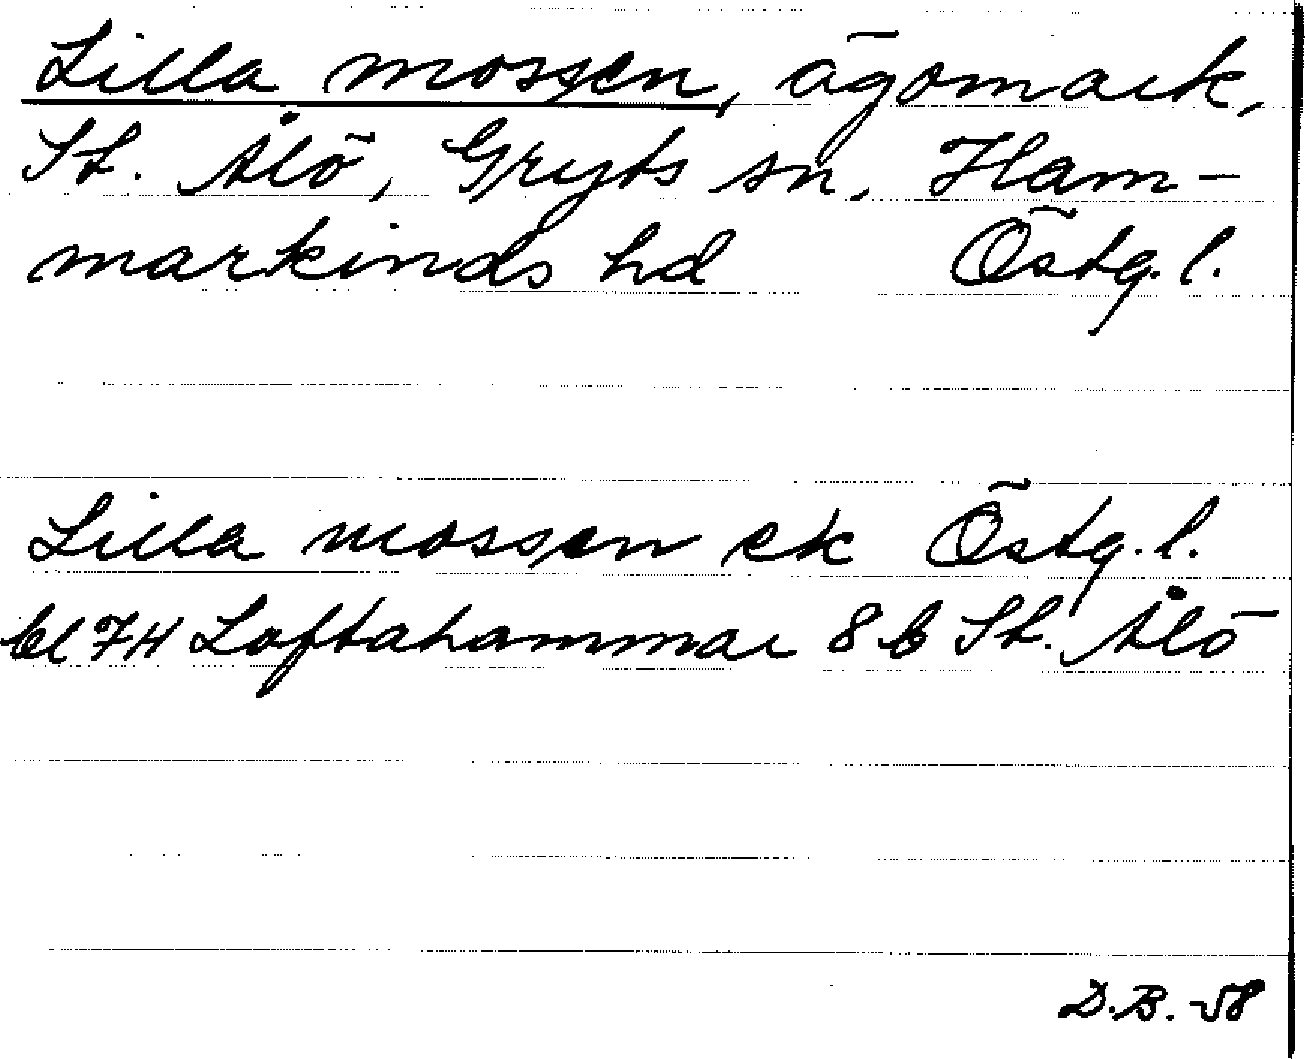 Lilla mossen, ägomark,
St. Ålö, Gryts sn, Ham-
markinds hd Östg. l.
Lilla mossen ek Östg. l.
bl 7H Loftahammar 8 b St. Ålö
D.B. -58